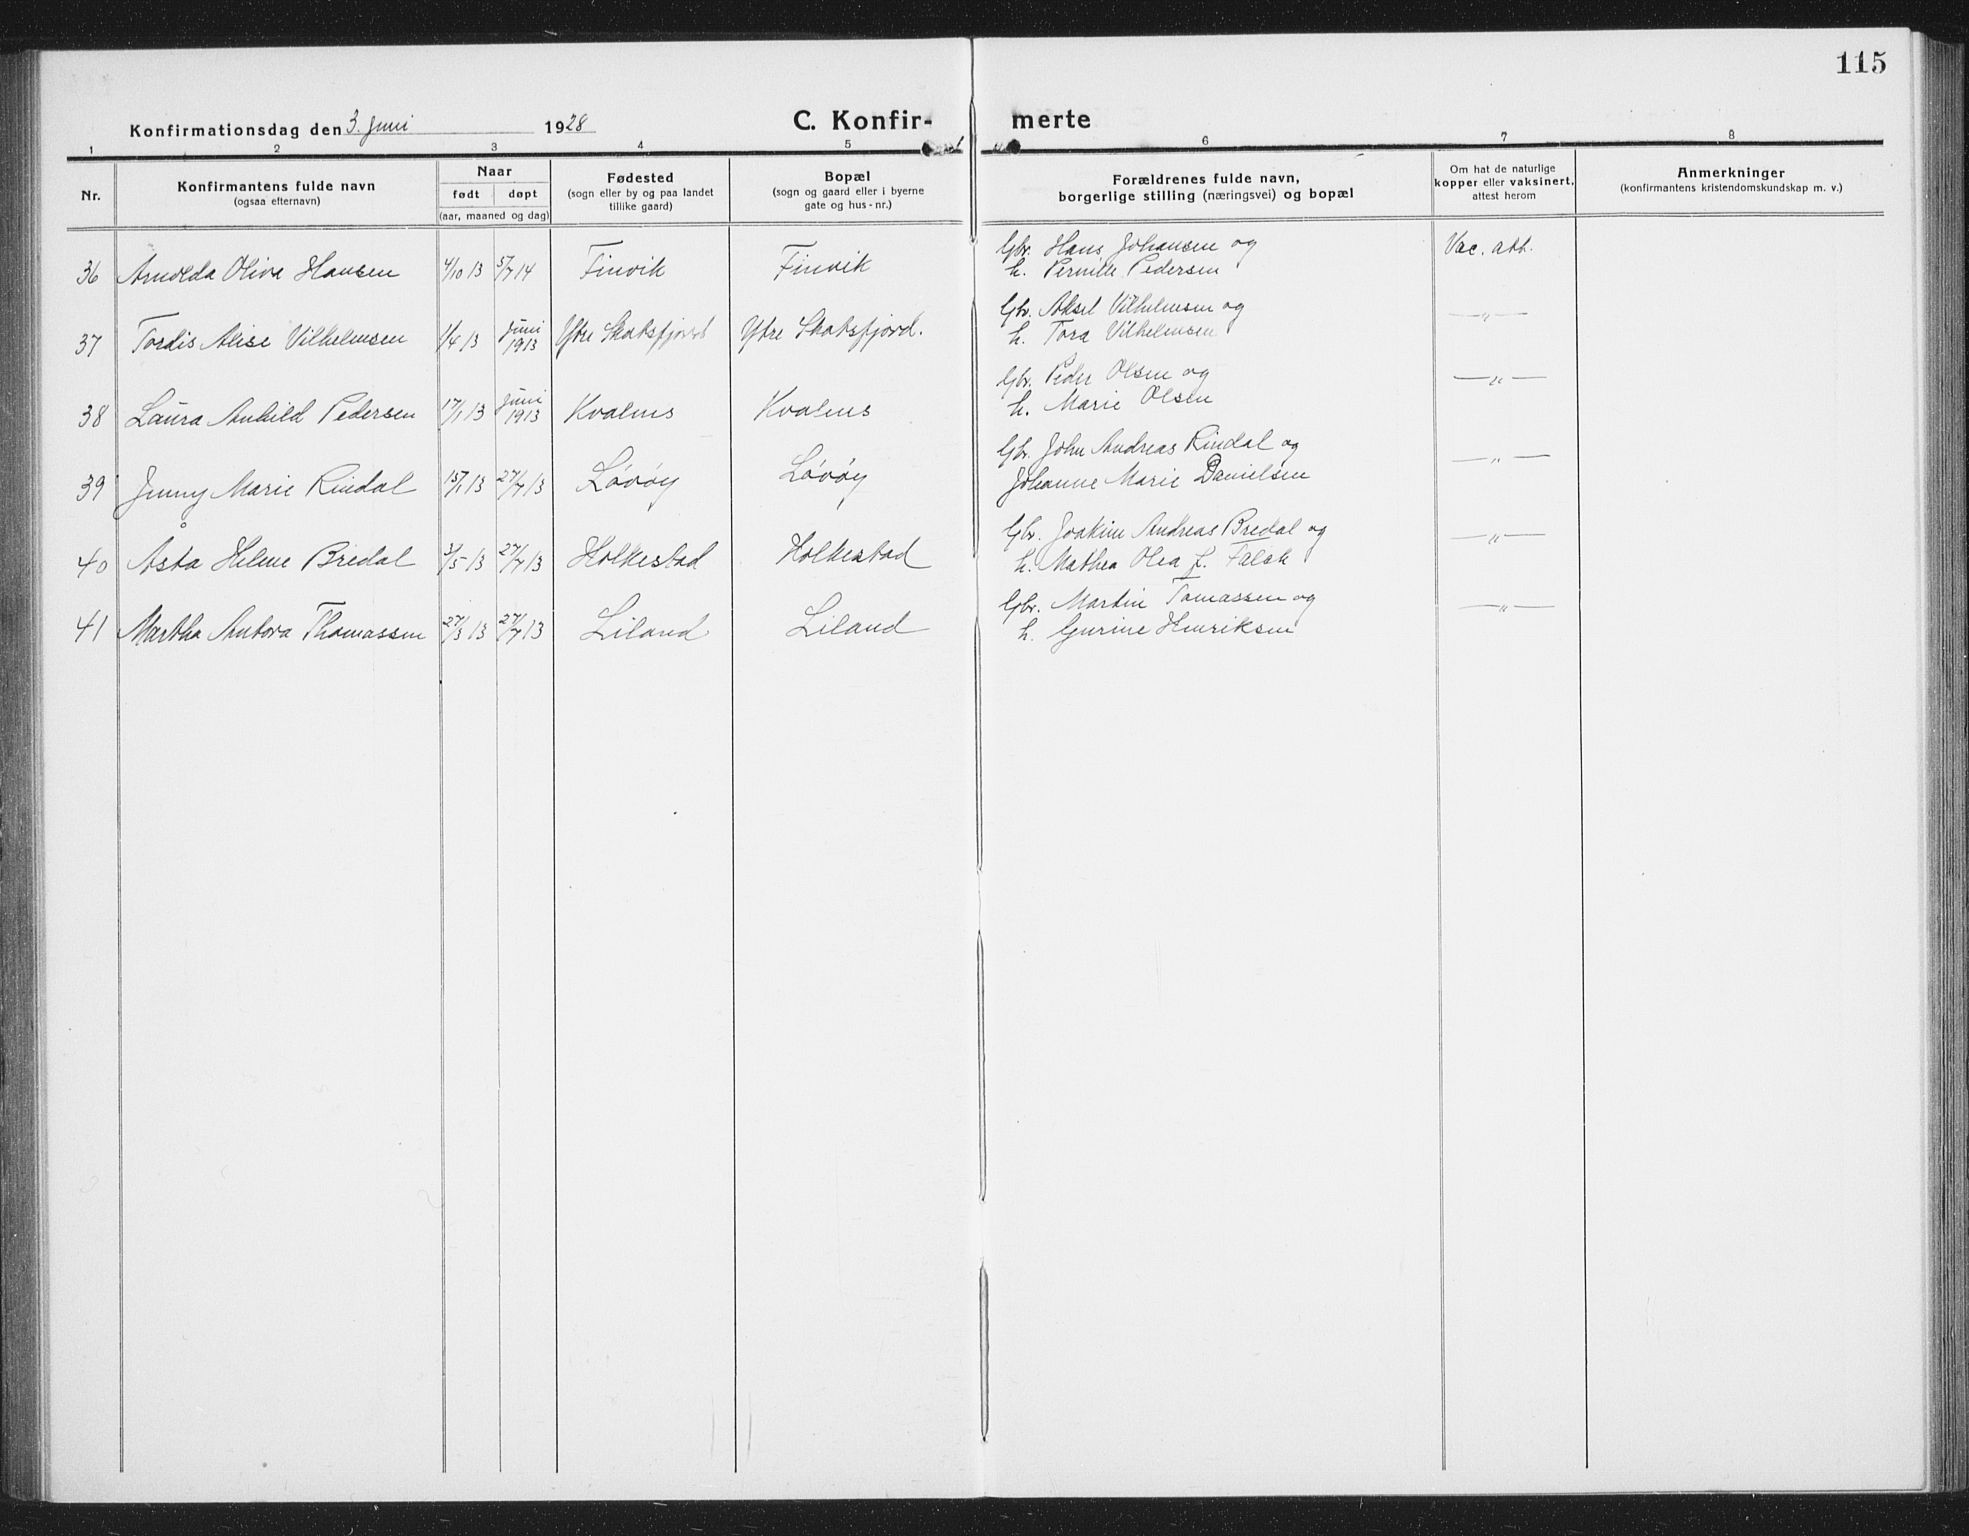 115
Konfirmationsdag den 3. Juni 1928
C. Konfir- merte
1 2 3 4 5 6 7 8
Nr.
Konfirmantens fulde navn
(ogsaa efternavn)
Naar
født døpt
(aar, maaned og dag)
Fødested
(sogn eller by og paa landet
tillike gaard)
Bopæl
(sogn og gaard eller i byerne
gate og hus-nr.)
Forældrenes fulde navn,
borgerlige stilling (næringsvei) og bopæl
Om hat de naturlige
kopper eller vaksinert,
attest herom
Anmerkninger
(konfirmantens kristendomskundskap m. v.)
36 Arnolda Oliva Hansen 4/10 13 5/7 14 Finvik Finvik
Gbr. Hans Johansen og
h. Pernille Pedersen
Vac. att.
37 Tordis Alise Vilhelmsen 1/4 13 Juni 1913 Ytre Skatsfjord Ytre Skatsfjord.
Gbr. Aksel Vilhelmsen og
h. Tora Vilhelmsen
—"—
38 Laura Anhild Pedersen 17/1 13 Juni 1913 Kvalnes Kvalnes
Gbr. Peder Olsen og
h. Marie Olsen
—"—
39 Jenny Marie Rindal 15/1 13 27/7 13 Løvøy Løvøy
Gbr. John Andreas Rindal og
Johanne Marie Danielsen
—"—
40 Åsta Helene Bredal 3/5 13 27/7 13 Holkestad Holkestad
Gbr. Joakim Andreas Bredal og
h. Mathea Olea f. Falck
—"—
41 Martha Antora Thomassen 27/3 13 27/7 13 Liland Liland
Gbr. Martin Tomassen og
h. Gurine Henriksen
—"—